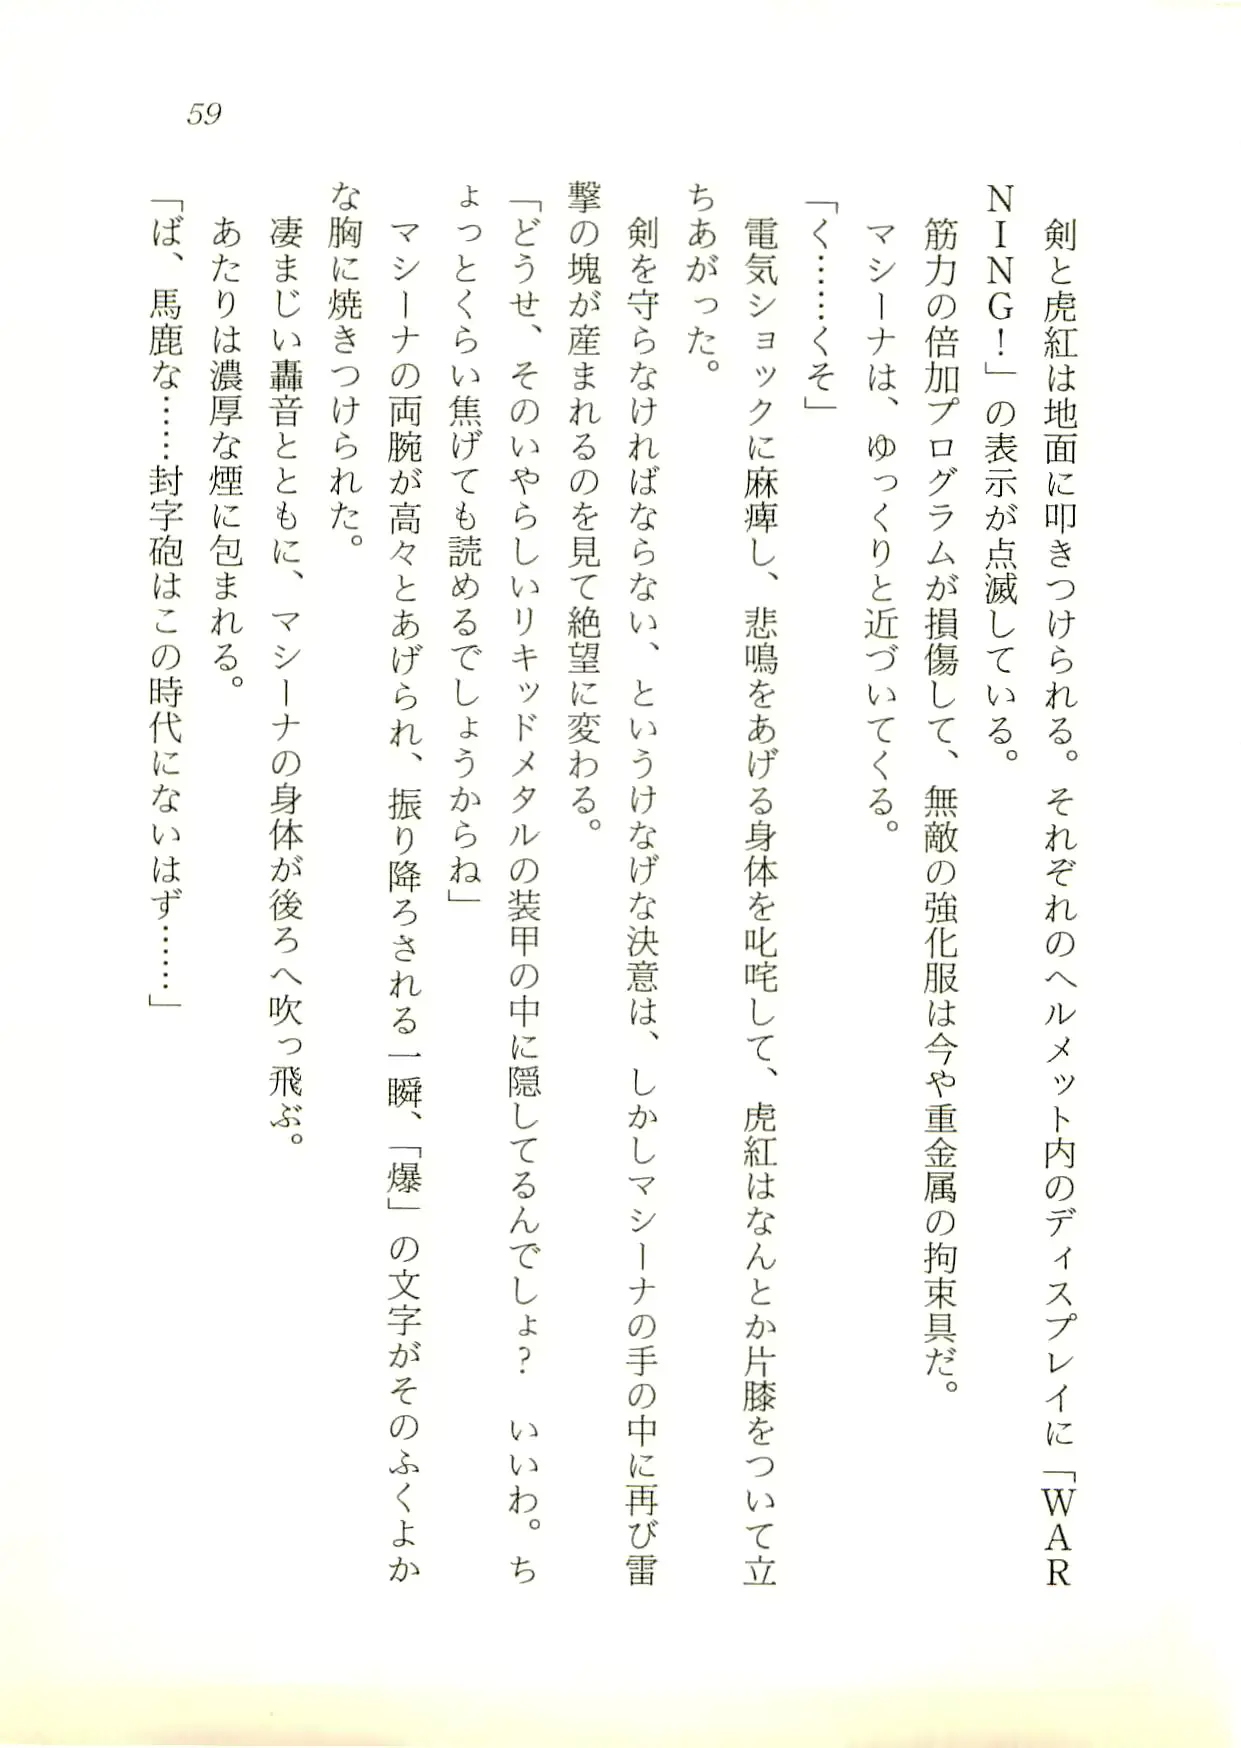 59
　剣と虎紅は地面に叩きつけられる。それぞれのヘルメット内のディスプレイに「WAR
NING！」の表示が点滅している。
　筋力の倍加プログラムが損傷して、無敵の強化服は今や重金属の拘束具だ。
　マシーナは、ゆっくりと近づいてくる。
「く……くそ」
　電気ショックに麻痺し、悲鳴をあげる身体を叱咤して、虎紅はなんとか片膝をついて立
ちあがった。
　剣を守らなければならない、というけなげな決意は、しかしマシーナの手の中に再び雷
撃の塊が産まれるのを見て絶望に変わる。
「どうせ、そのいやらしいリキッドメタルの装甲の中に隠してるんでしょ？　いいわ。ち
ょっとくらい焦げても読めるでしょうからね」
　マシーナの両腕が高々とあげられ、振り降ろされる一瞬、「爆」の文字がそのふくよか
な胸に焼きつけられた。
　凄まじい轟音とともに、マシーナの身体が後ろへ吹っ飛ぶ。
　あたりは濃厚な煙に包まれる。
「ば、馬鹿な……封字砲はこの時代にないはず……」